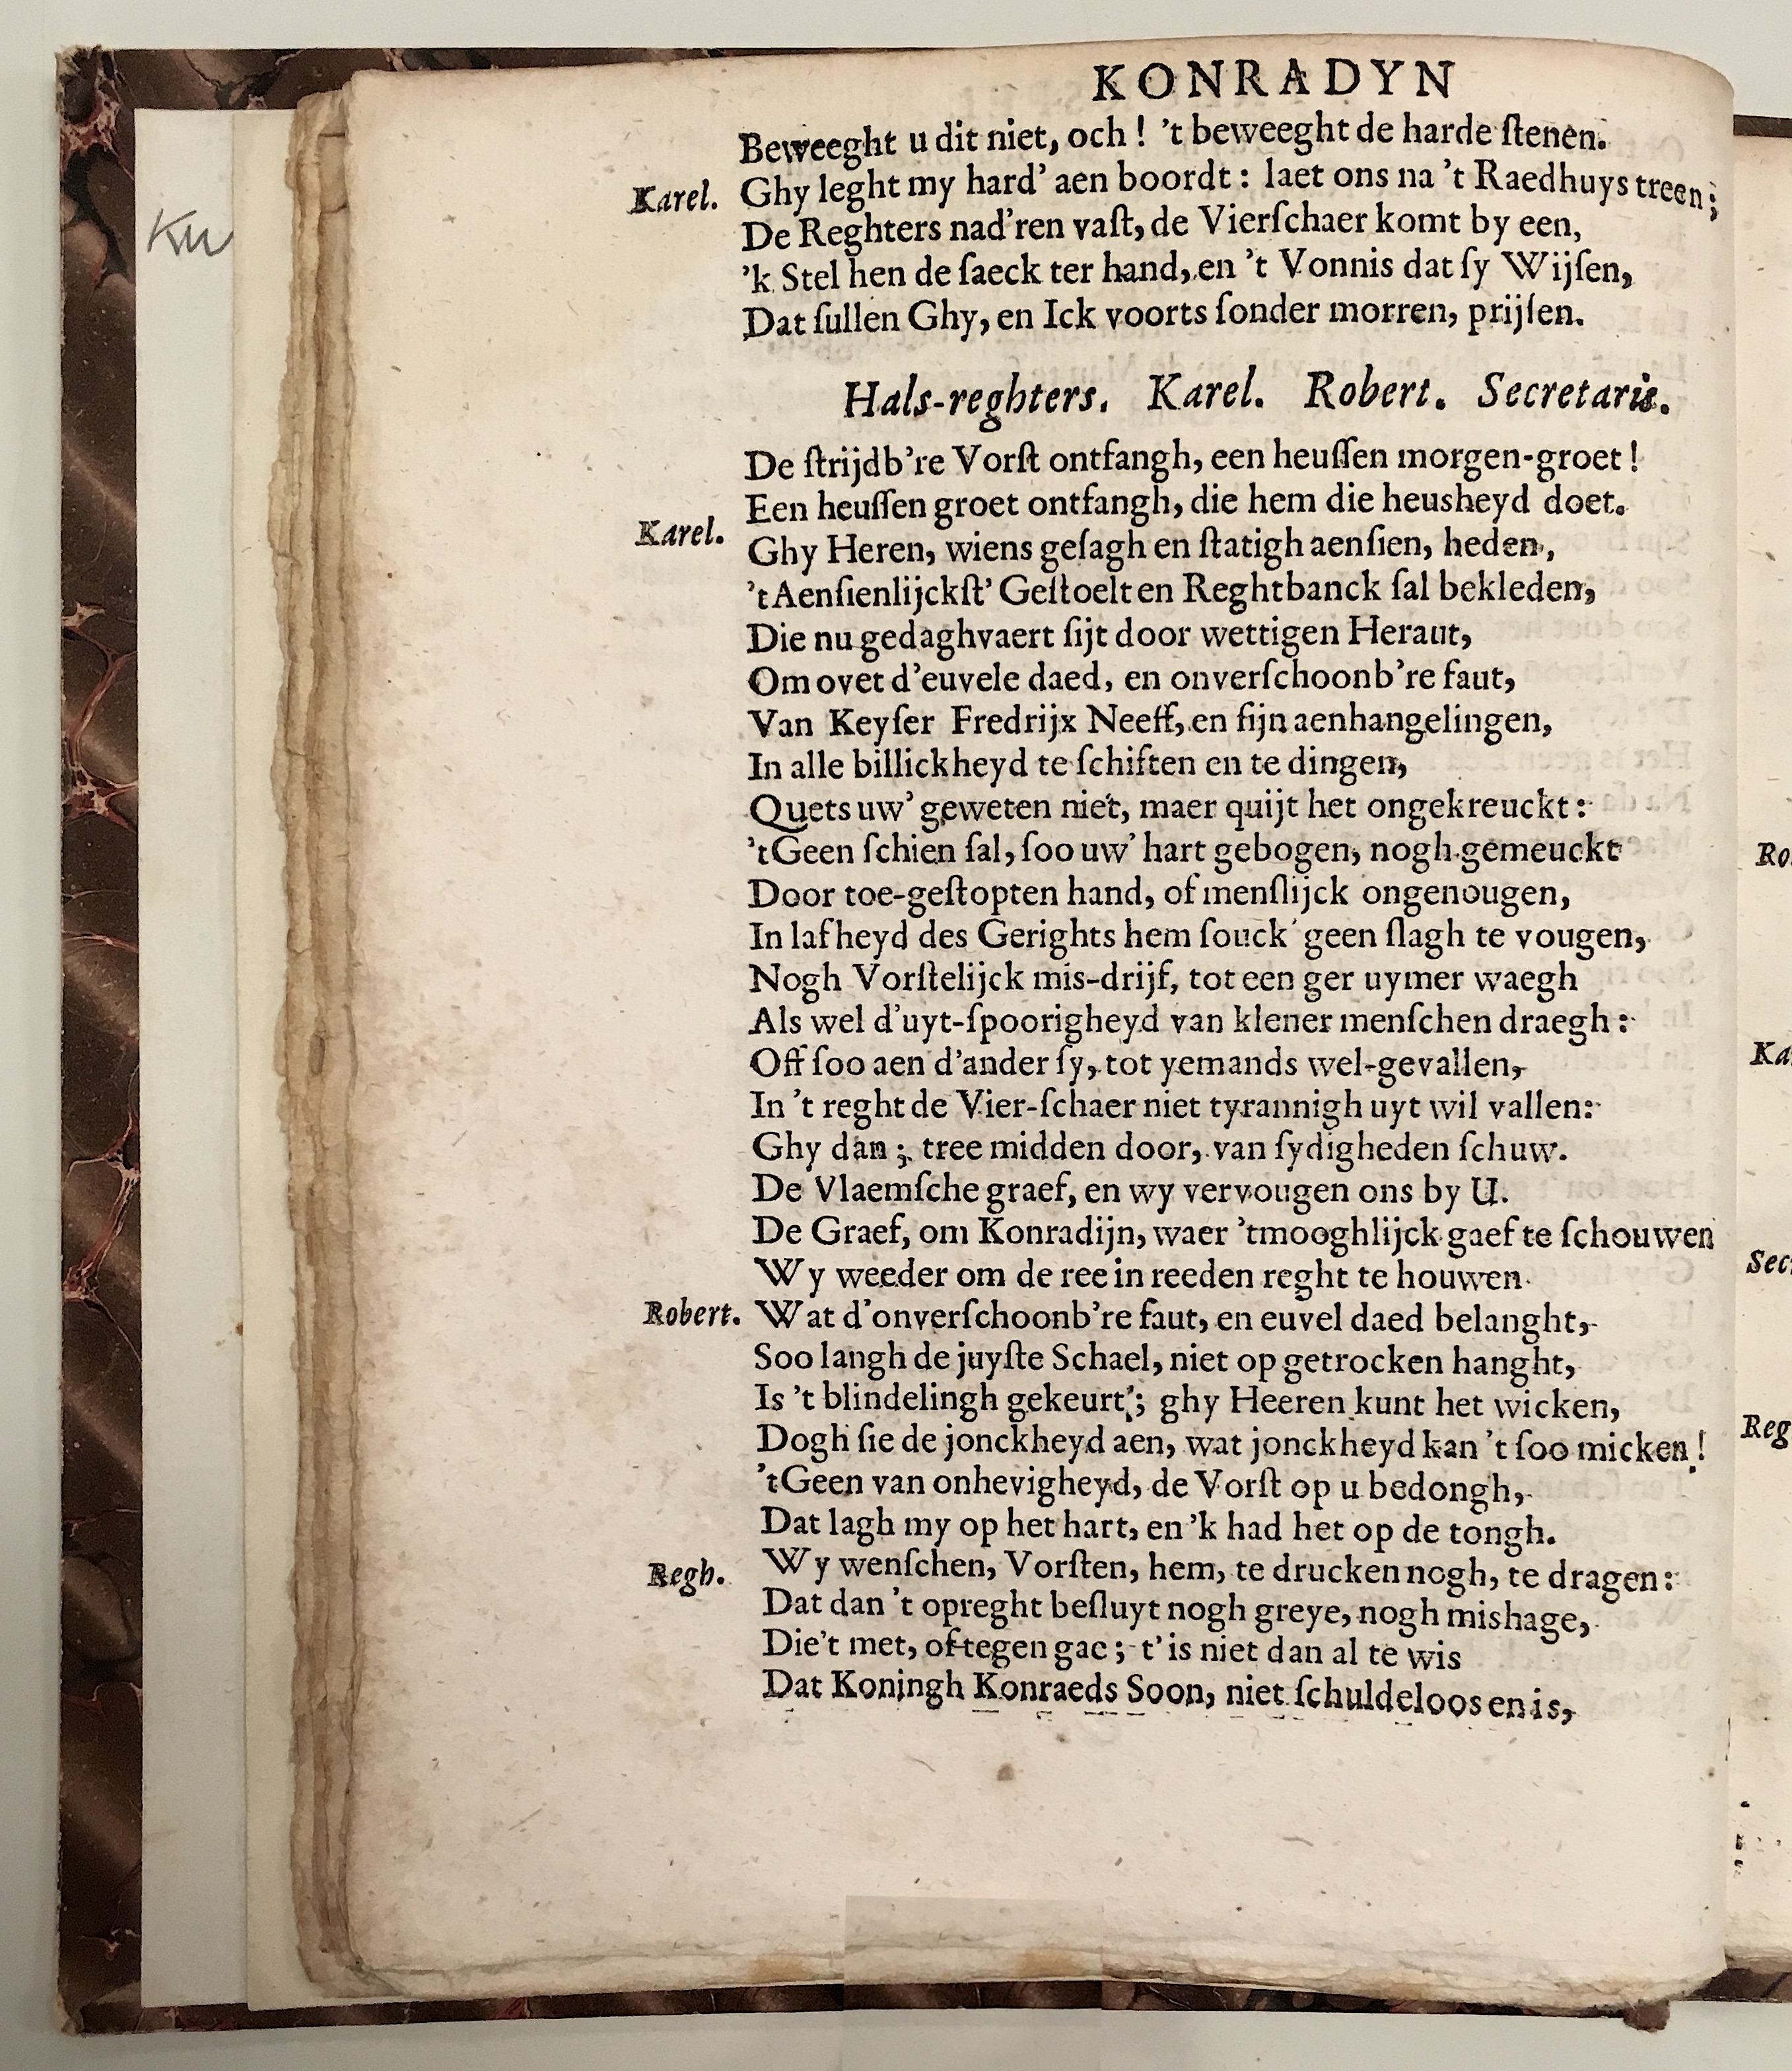 KONRADYN
Beweeght u dit niet, och! 't beweeght de harde ſtenen.
Karel. Ghy leght my hard' aen boordt: laet ons na 't Raedhuys treen;
De Reghters nad'ren vaſt, de Vierſchaer komt by een,
'k Stel hen de ſaeck ter hand, en 't Vonnis dat ſy Wijſen,
Dat ſullen Ghy, en Ick voorts ſonder morren, prijſen.
Hals-reghters. Karel. Robert. Secretaris.
De ſtrijdb're Vorſt ontfangh, een heuſſen morgen-groet!
Een heuſſen groet ontfangh, die hem die heusheyd doet.
Karel. Ghy Heren, wiens geſagh en ſtatigh aenſien, heden,
't Aenſienlijckſt' Geſtoelt en Reghtbanck ſal bekleden,
Die nu gedaghvaert ſijt door wettigen Heraut,
Om ovet d'euvele daed, en onverſchoonb're faut,
Van Keyſer Fredrijx Neeff, en ſijn aenhangelingen,
In alle billickheyd te ſchiften en te dingen,
Quets uw' geweten niet, maer quijt het ongekreuckt:
't Geen ſchien ſal, ſoo uw' hart gebogen, nogh gemeuckt
Door toe-geſtopten hand, of menſlijck ongenougen,
In lafheyd des Gerights hem ſouck' geen ſlagh te vougen,
Nogh Vorſtelijck mis-drijf, tot een ger uymer waegh
Als wel d'uyt-ſpoorigheyd van klener menſchen draegh:
Off ſoo aen d'ander ſy, tot yemands wel-gevallen,
In 't reght de Vier-ſchaer niet tyrannigh uyt wil vallen:
Ghy dan; tree midden door, van ſydigheden ſchuw.
De Vlaemſche graef, en wy vervougen ons by U.
De Graef, om Konradijn, waer 'tmooghlijck gaef te ſchouwen
Wy weeder om de ree in reeden reght te houwen
Robert. Wat d'onverſchoonb're faut, en euvel daed belanght,
Soo langh de juyſte Schael, niet op getrocken hanght,
Is 't blindelingh gekeurt; ghy Heeren kunt het wicken,
Dogh ſie de jonckheyd aen, wat jonckheyd kan 't ſoo micken!
't Geen van onhevigheyd, de Vorſt op u bedongh,
Dat lagh my op het hart, en 'k had het op de tongh.
Regh. Wy wenſchen, Vorſten, hem, te drucken nogh, te dragen:
Dat dan 't opreght beſluyt nogh greye, nogh mishage,
Die't met, of tegen gae; t' is niet dan al te wis
Dat Koningh Konraeds Soon, niet ſchuldeloos en is,
Ro
Ka
Sec
Reg